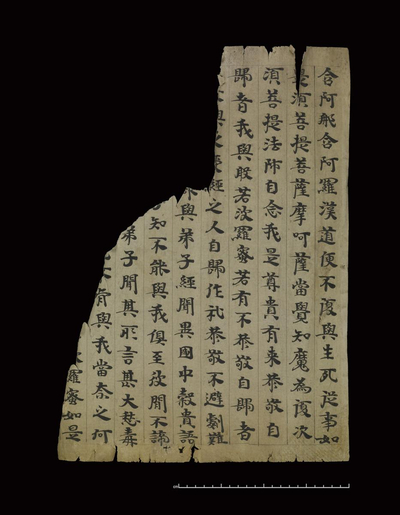 含阿那含阿羅漢道便不復與生死從事如
是須菩提菩薩摩呵薩當覺知魔為復次
須菩提法師自念我是尊貴有来恭敬自
歸者我與般若波羅蜜若有不恭敬自歸者
與之受經之人自歸作礼恭敬不避劇難
與弟子經聞異國中穀貴語
知不能與我俱至彼聞不諦
弟子聞其所言甚大愁毒
不肯與我當奈之何
羅蜜如是